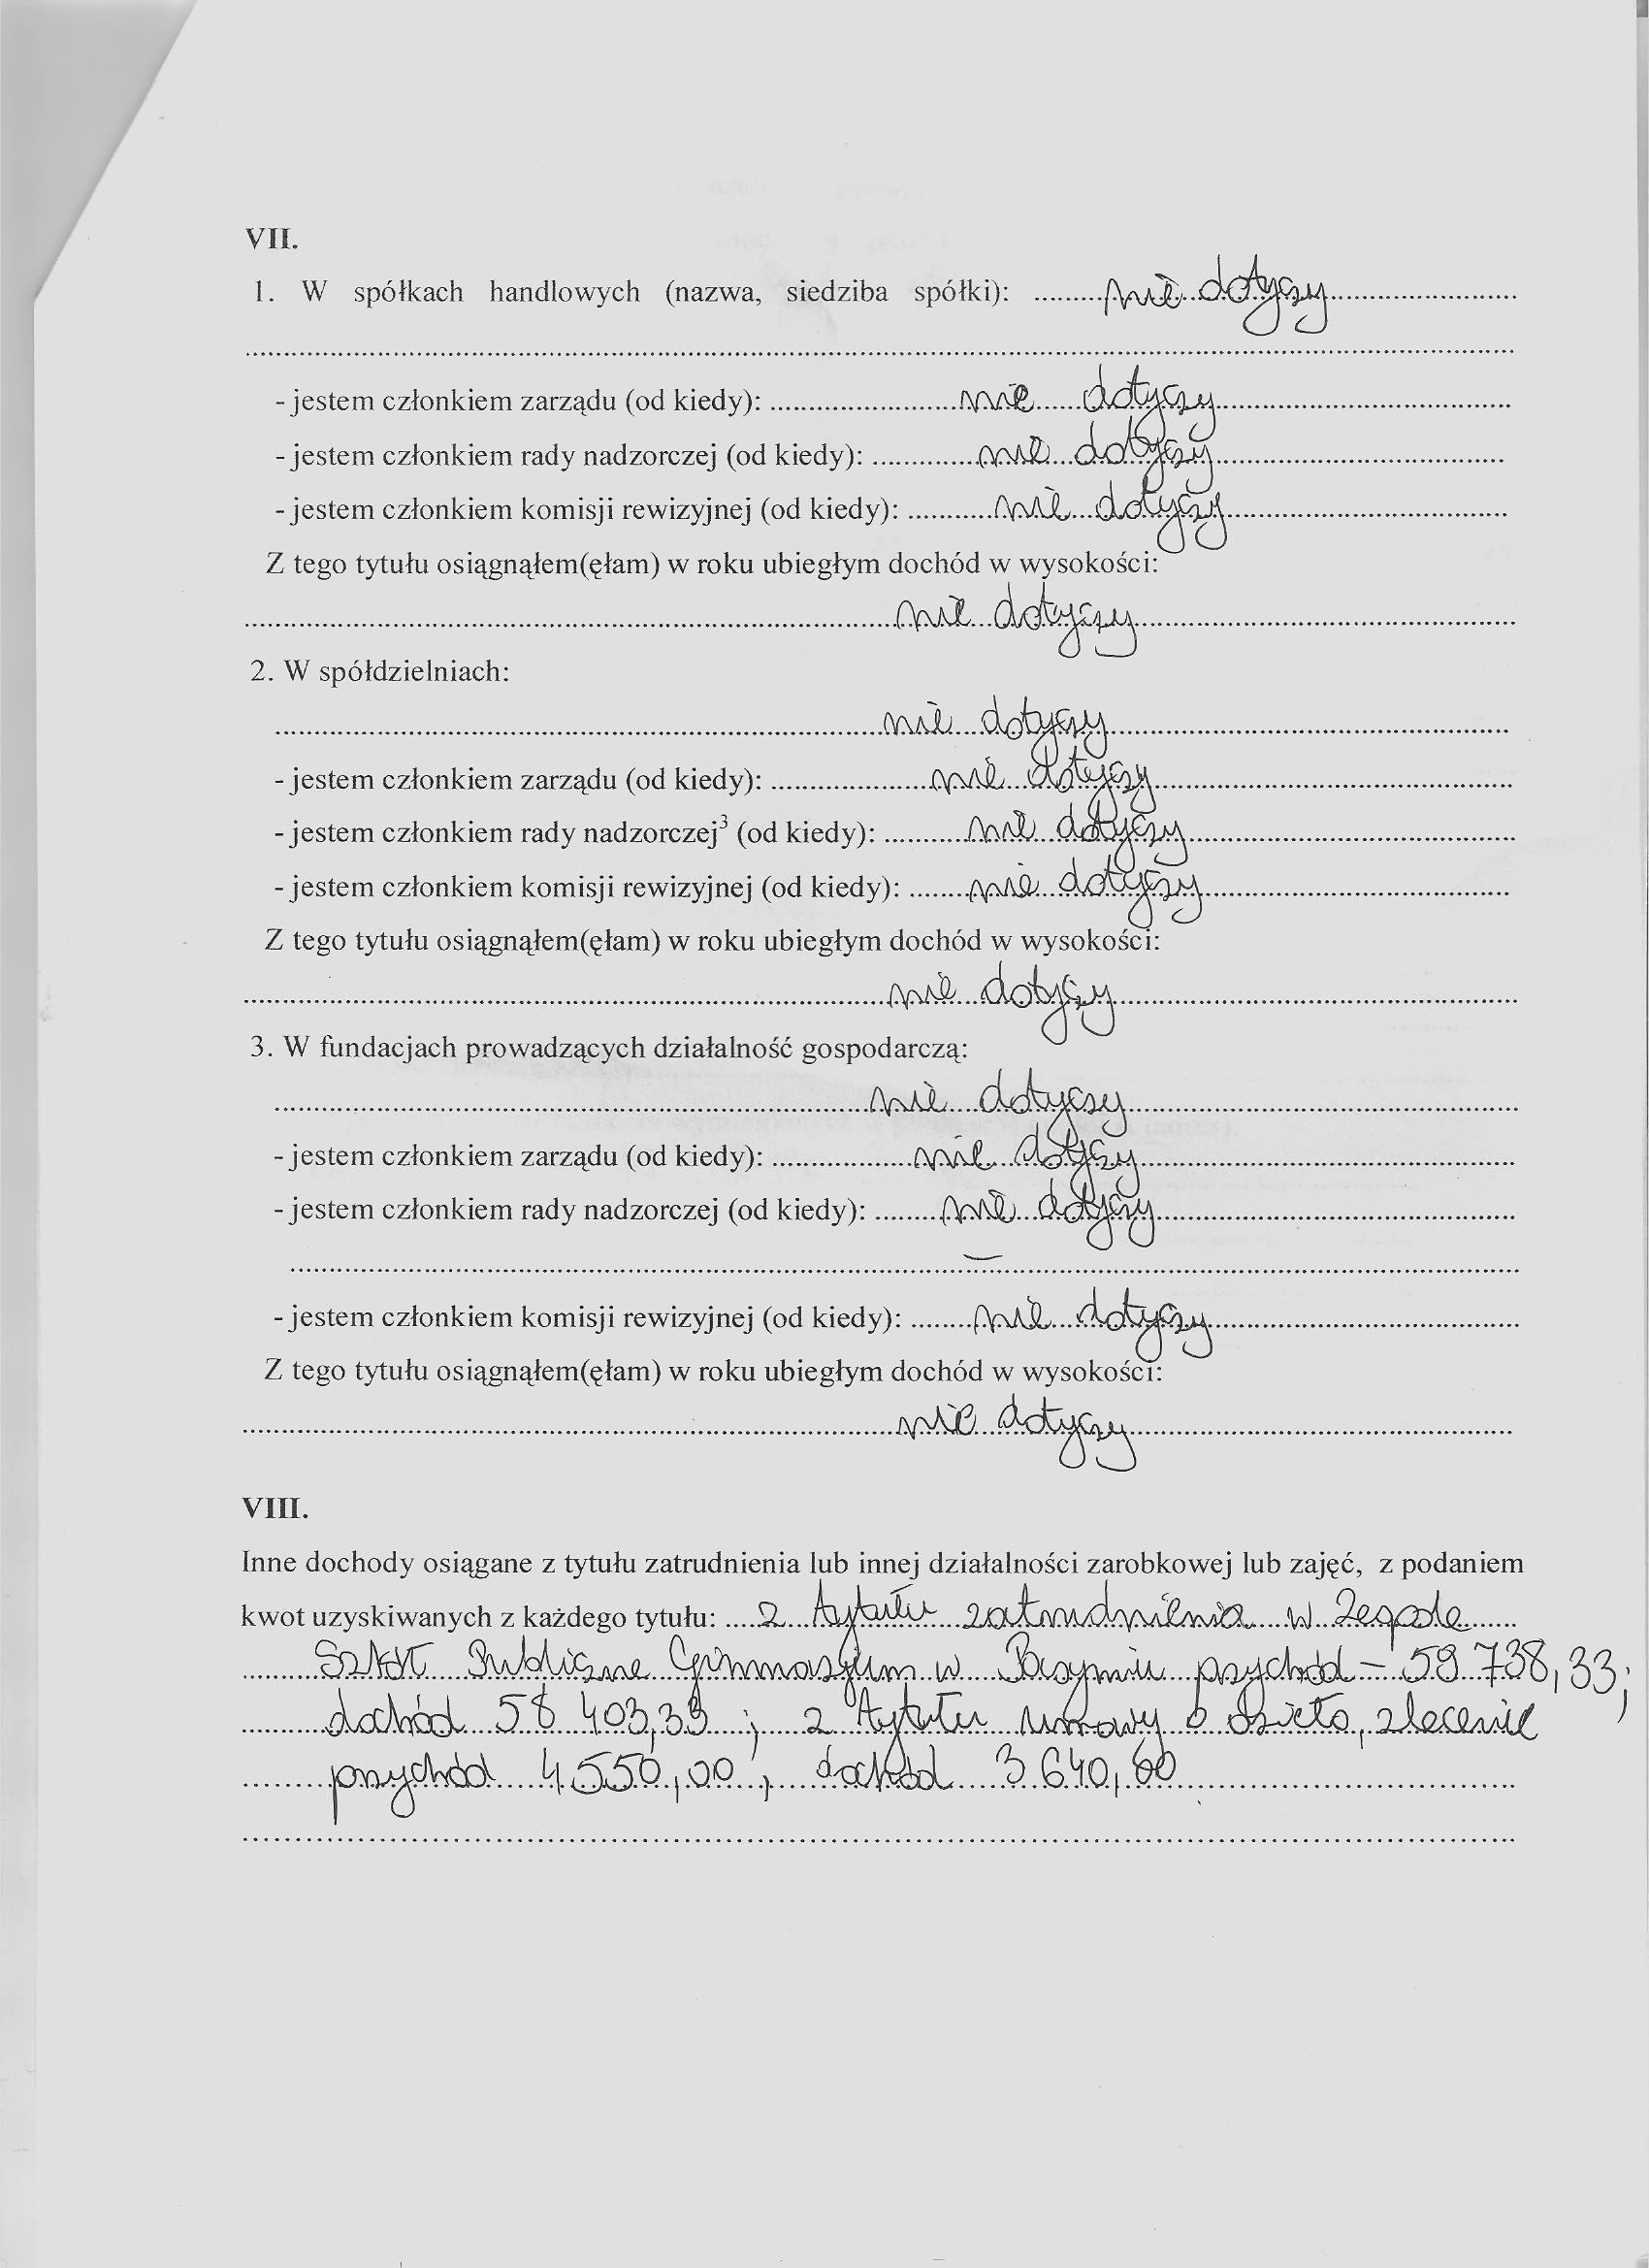 VII.
1. W spółkach handlowych (nazwa, siedziba spółki): nie dotyczy
- jestem członkiem zarządu (od kiedy): nie dotyczy
- jestem członkiem rady nadzorczej (od kiedy): nie dotyczy
- jestem członkiem komisji rewizyjnej (od kiedy): nie dotyczy
Z tego tytułu osiągnąłem(ęłam) w roku ubiegłym dochód w wysokości:
nie dotyczy
2. W spółdzielniach:
nie dotyczy
- jestem członkiem zarządu (od kiedy): nie dotyczy
- jestem członkiem rady nadzorczej³ (od kiedy): nie dotyczy
- jestem członkiem komisji rewizyjnej (od kiedy): nie dotyczy
Z tego tytułu osiągnąłem(ęłam) w roku ubiegłym dochód w wysokości:
nie dotyczy
3. W fundacjach prowadzących działalność gospodarczą:
nie dotyczy
- jestem członkiem zarządu (od kiedy): nie dotyczy
- jestem członkiem rady nadzorczej (od kiedy): nie dotyczy
—
- jestem członkiem komisji rewizyjnej (od kiedy): nie dotyczy
Z tego tytułu osiągnąłem(ęłam) w roku ubiegłym dochód w wysokości:
nie dotyczy
VIII.
Inne dochody osiągane z tytułu zatrudnienia lub innej działalności zarobkowej lub zajęć, z podaniem
kwot uzyskiwanych z każdego tytułu: z tytułu zatrudnienia w Zespole
Szkół Publiczne Gimnazjum w przychód – 59 738,33;
dochód 58 403,33 ; z tytułu umowy o dzieło, zlecenie
przychód 4 550,00 ; dochód 3 640,00